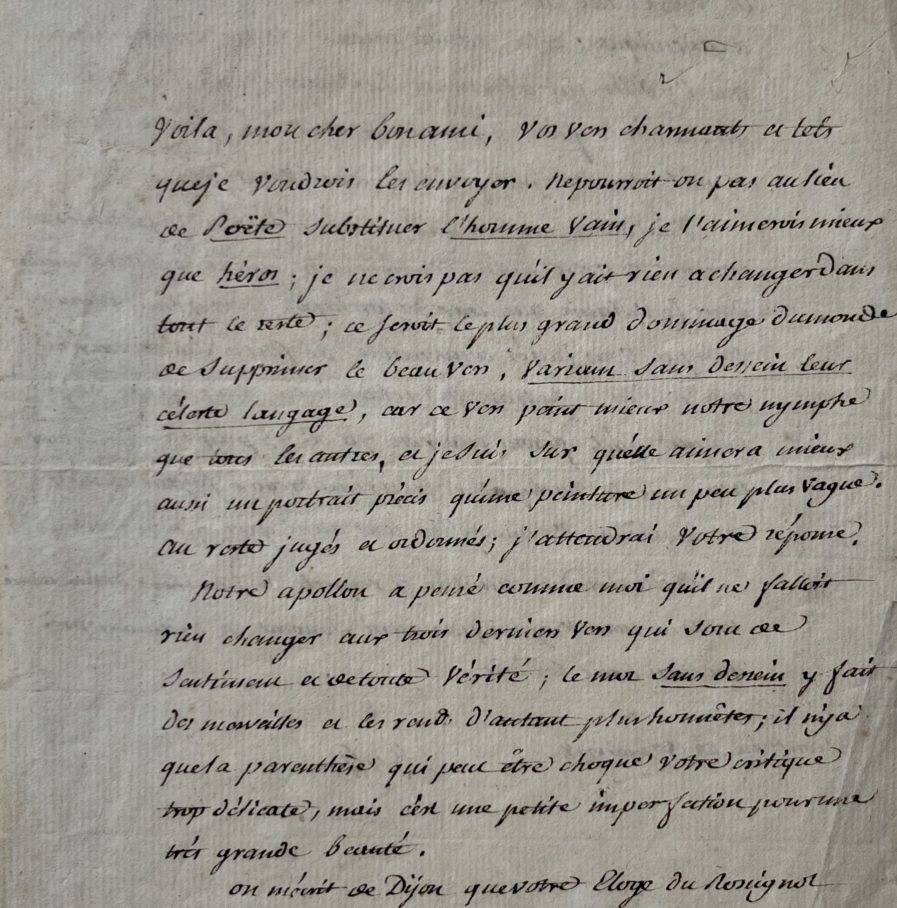 Voila, mon cher bon ami, vos vers charmants et tels
que je voudrois les envoyer. Ne pourroit on pas au lieu
de Poëte substituer l'homme vain, je l'aimerois mieux
que héros ; je ne crois pas qu'il y ait rien a changer dans
tout le reste ; ce seroit le plus grand dommage du monde
de supprimer le beau vers, variant sans dessein leur
céleste langage, car ce vers peint mieux notre nymphe
que tous les autres, et je suis sur qu'elle aimera mieux
aussi un portrait précis qu'une peinture un peu plus vague.
au reste jugés et ordonnés ; j'attendrai votre réponse.
Notre apollon a pensé comme moi qu'il ne falloit
rien changer aux trois derniers vers qui sont de
sentiment et de toute vérité ; le mot sans dessein y fait
des merveilles et les rend d'autant plus honnêtes ; il n'y a
que la parenthèse qui peut être choque votre critique
trop délicate, mais c'est une petite imperfection pour une
très grande beauté.
on m'écrit de Dijon que votre Eloge du Rossignol